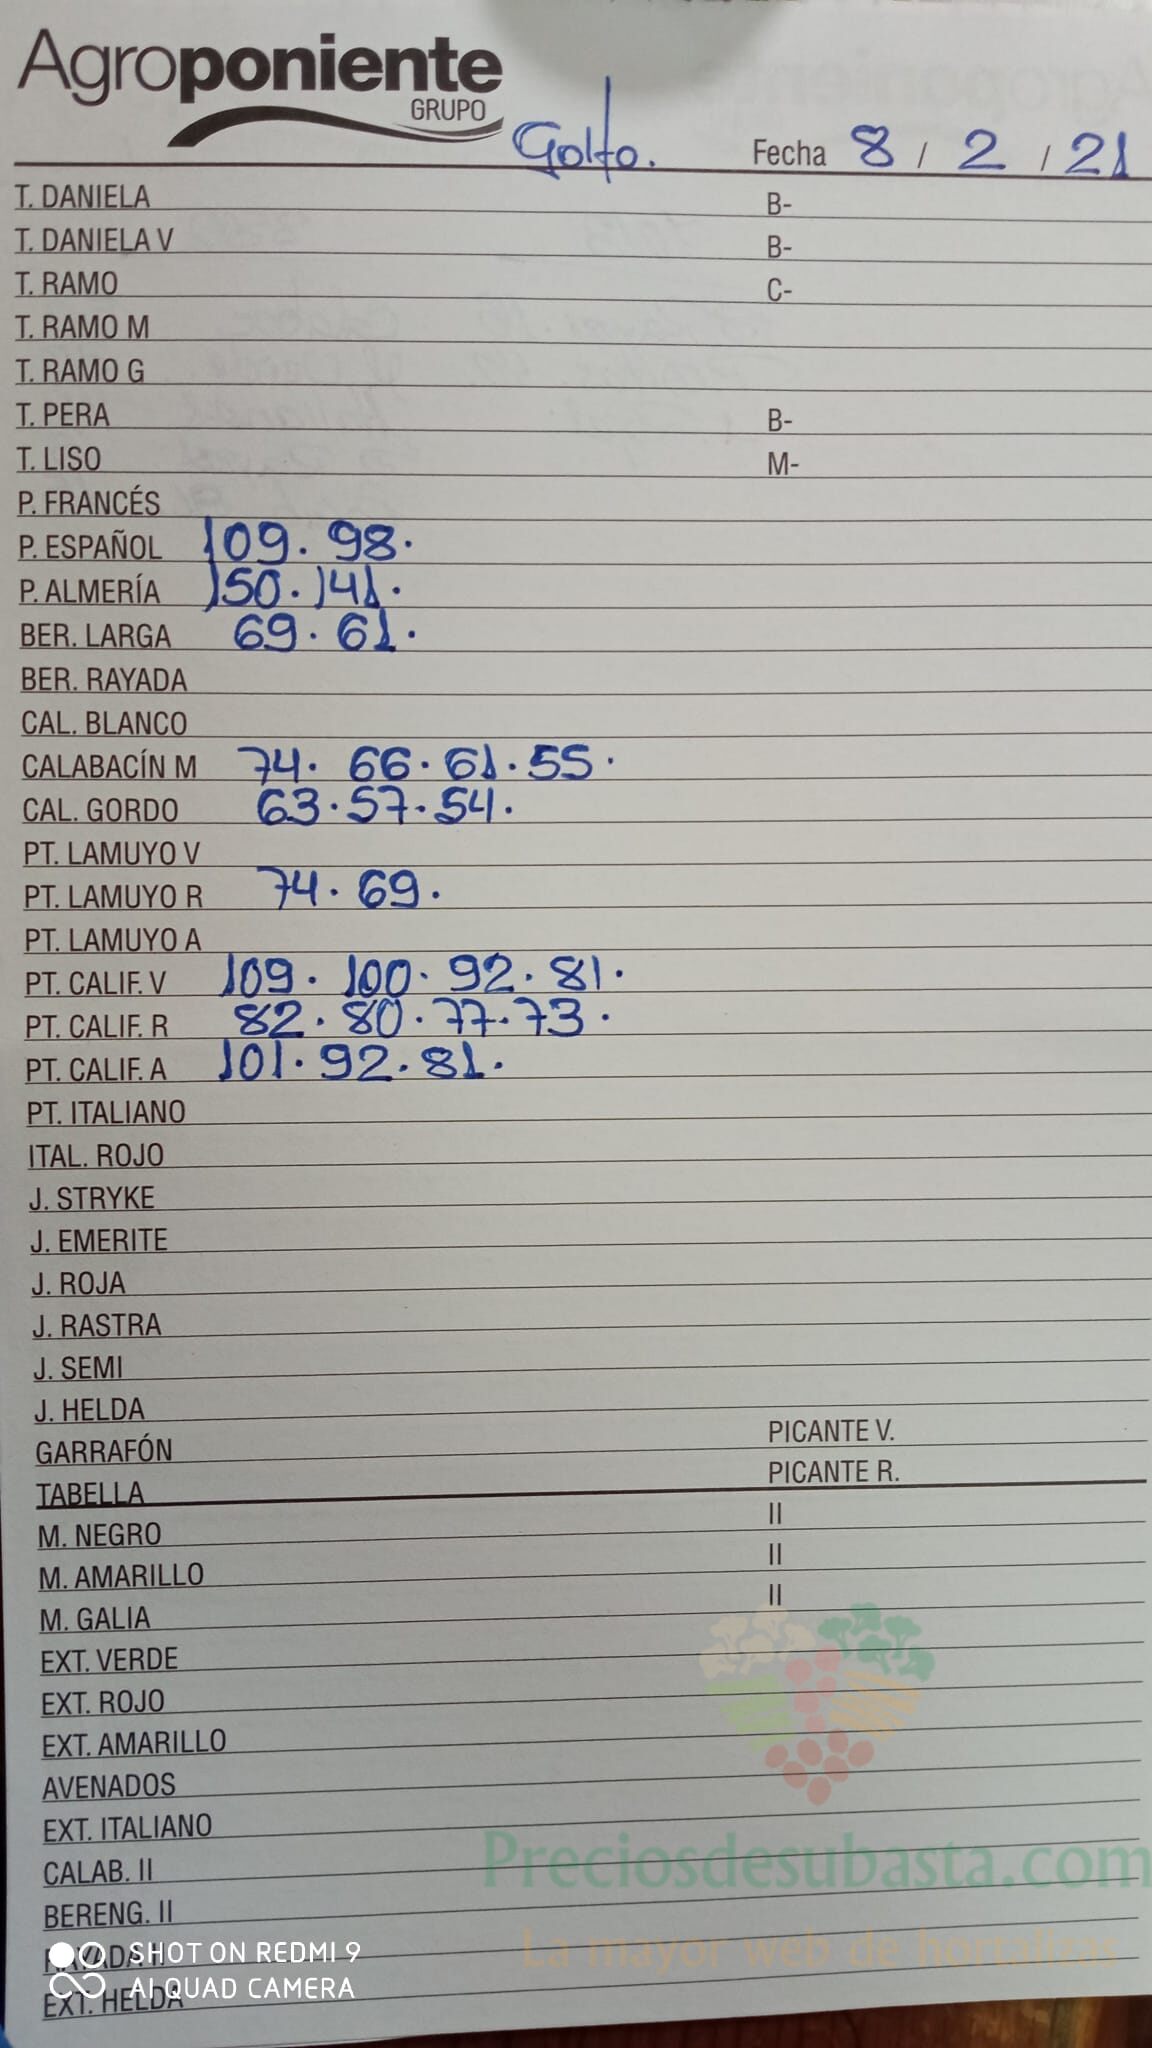 Agroponiente
GRUPO
Golfo. Fecha 8 / 2 / 21
T. DANIELA B-
T. DANIELA V B-
T. RAMO C-
T. RAMO M
T. RAMO G
T. PERA B-
T. LISO M-
P. FRANCÉS
P. ESPAÑOL 109. 98.
P. ALMERÍA 150. 141.
BER. LARGA 69. 61.
BER. RAYADA
CAL. BLANCO
CALABACÍN M 74. 66. 61. 55.
CAL. GORDO 63. 57. 54.
PT. LAMUYO V
PT. LAMUYO R 74. 69.
PT. LAMUYO A
PT. CALIF. V 109. 100. 92. 81.
PT. CALIF. R 82. 80. 77. 73.
PT. CALIF. A 101. 92. 81.
PT. ITALIANO
ITAL. ROJO
J. STRYKE
J. EMERITE
J. ROJA
J. RASTRA
J. SEMI
J. HELDA
GARRAFÓN PICANTE V.
TABELLA PICANTE R.
M. NEGRO II
M. AMARILLO II
M. GALIA II
EXT. VERDE
EXT. ROJO
EXT. AMARILLO
AVENADOS
EXT. ITALIANO
CALAB. II
Preciosdesubasta.com
BERENG. II
La mayor web de hortalizas
RAYADA II
SHOT ON REDMI 9
AI QUAD CAMERA
EXT. HELDA